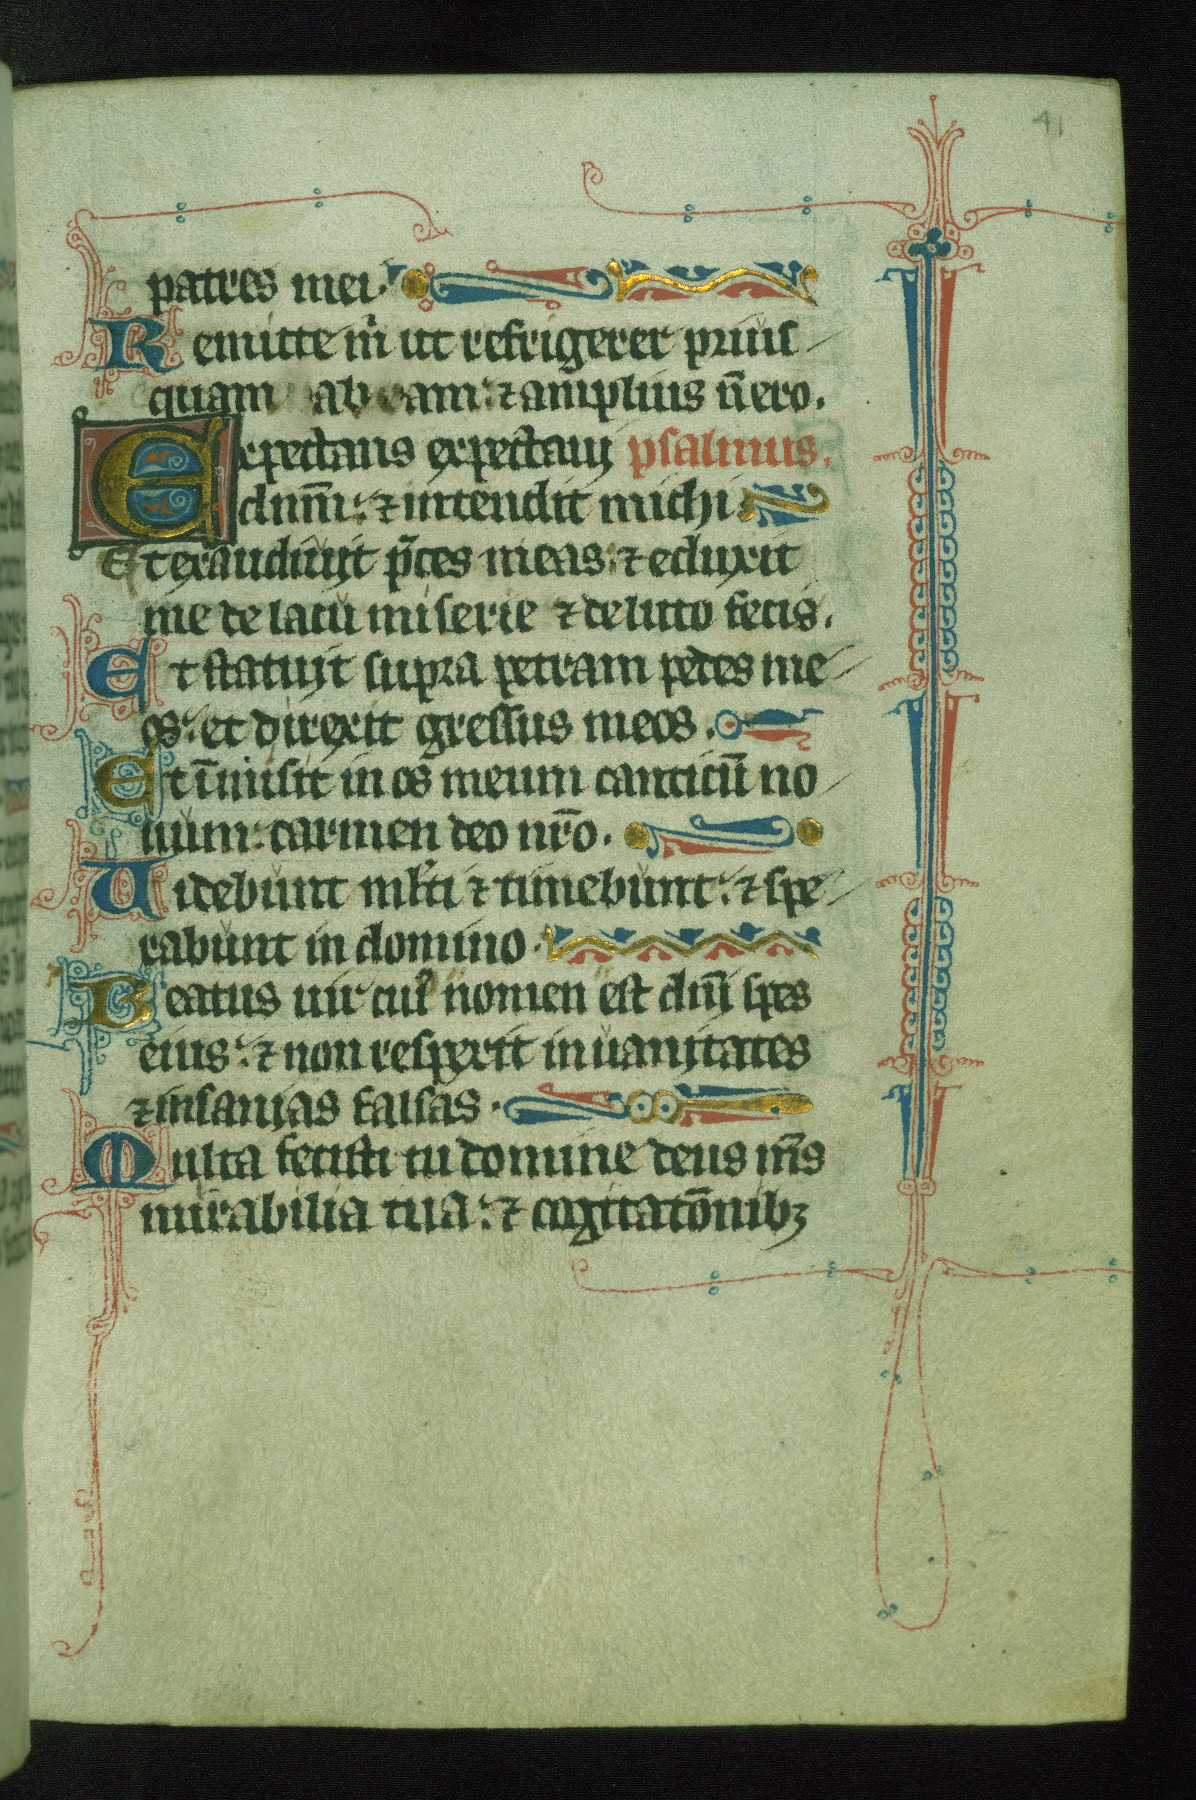 41
patres mei.
Remitte m̄ ut refrigerer prius
quam abeam: ⁊ amplius n̄ ero.
Expectans expectaui psalmus.
dn̄m: ⁊ intendit michi
Et exaudiuit p̄ces meas: ⁊ eduxit
me de lacu miserie ⁊ de luto fecis.
Et statuit supra petram pedes me
os: et direxit gressus meos.
Et īmisit in os meum canticū no
uum: carmen deo nr̄o.
Uidebunt ml̄ti ⁊ timebunt: ⁊ spe
rabunt in domino.
Beatus uir cui᷒ nomen est dn̄i spes
eius: ⁊ non respexit in uanitates
⁊ insanias falsas.
Multa fecisti tu domine deus m̄s
mirabilia tua: ⁊ cogitatōnibꝫ